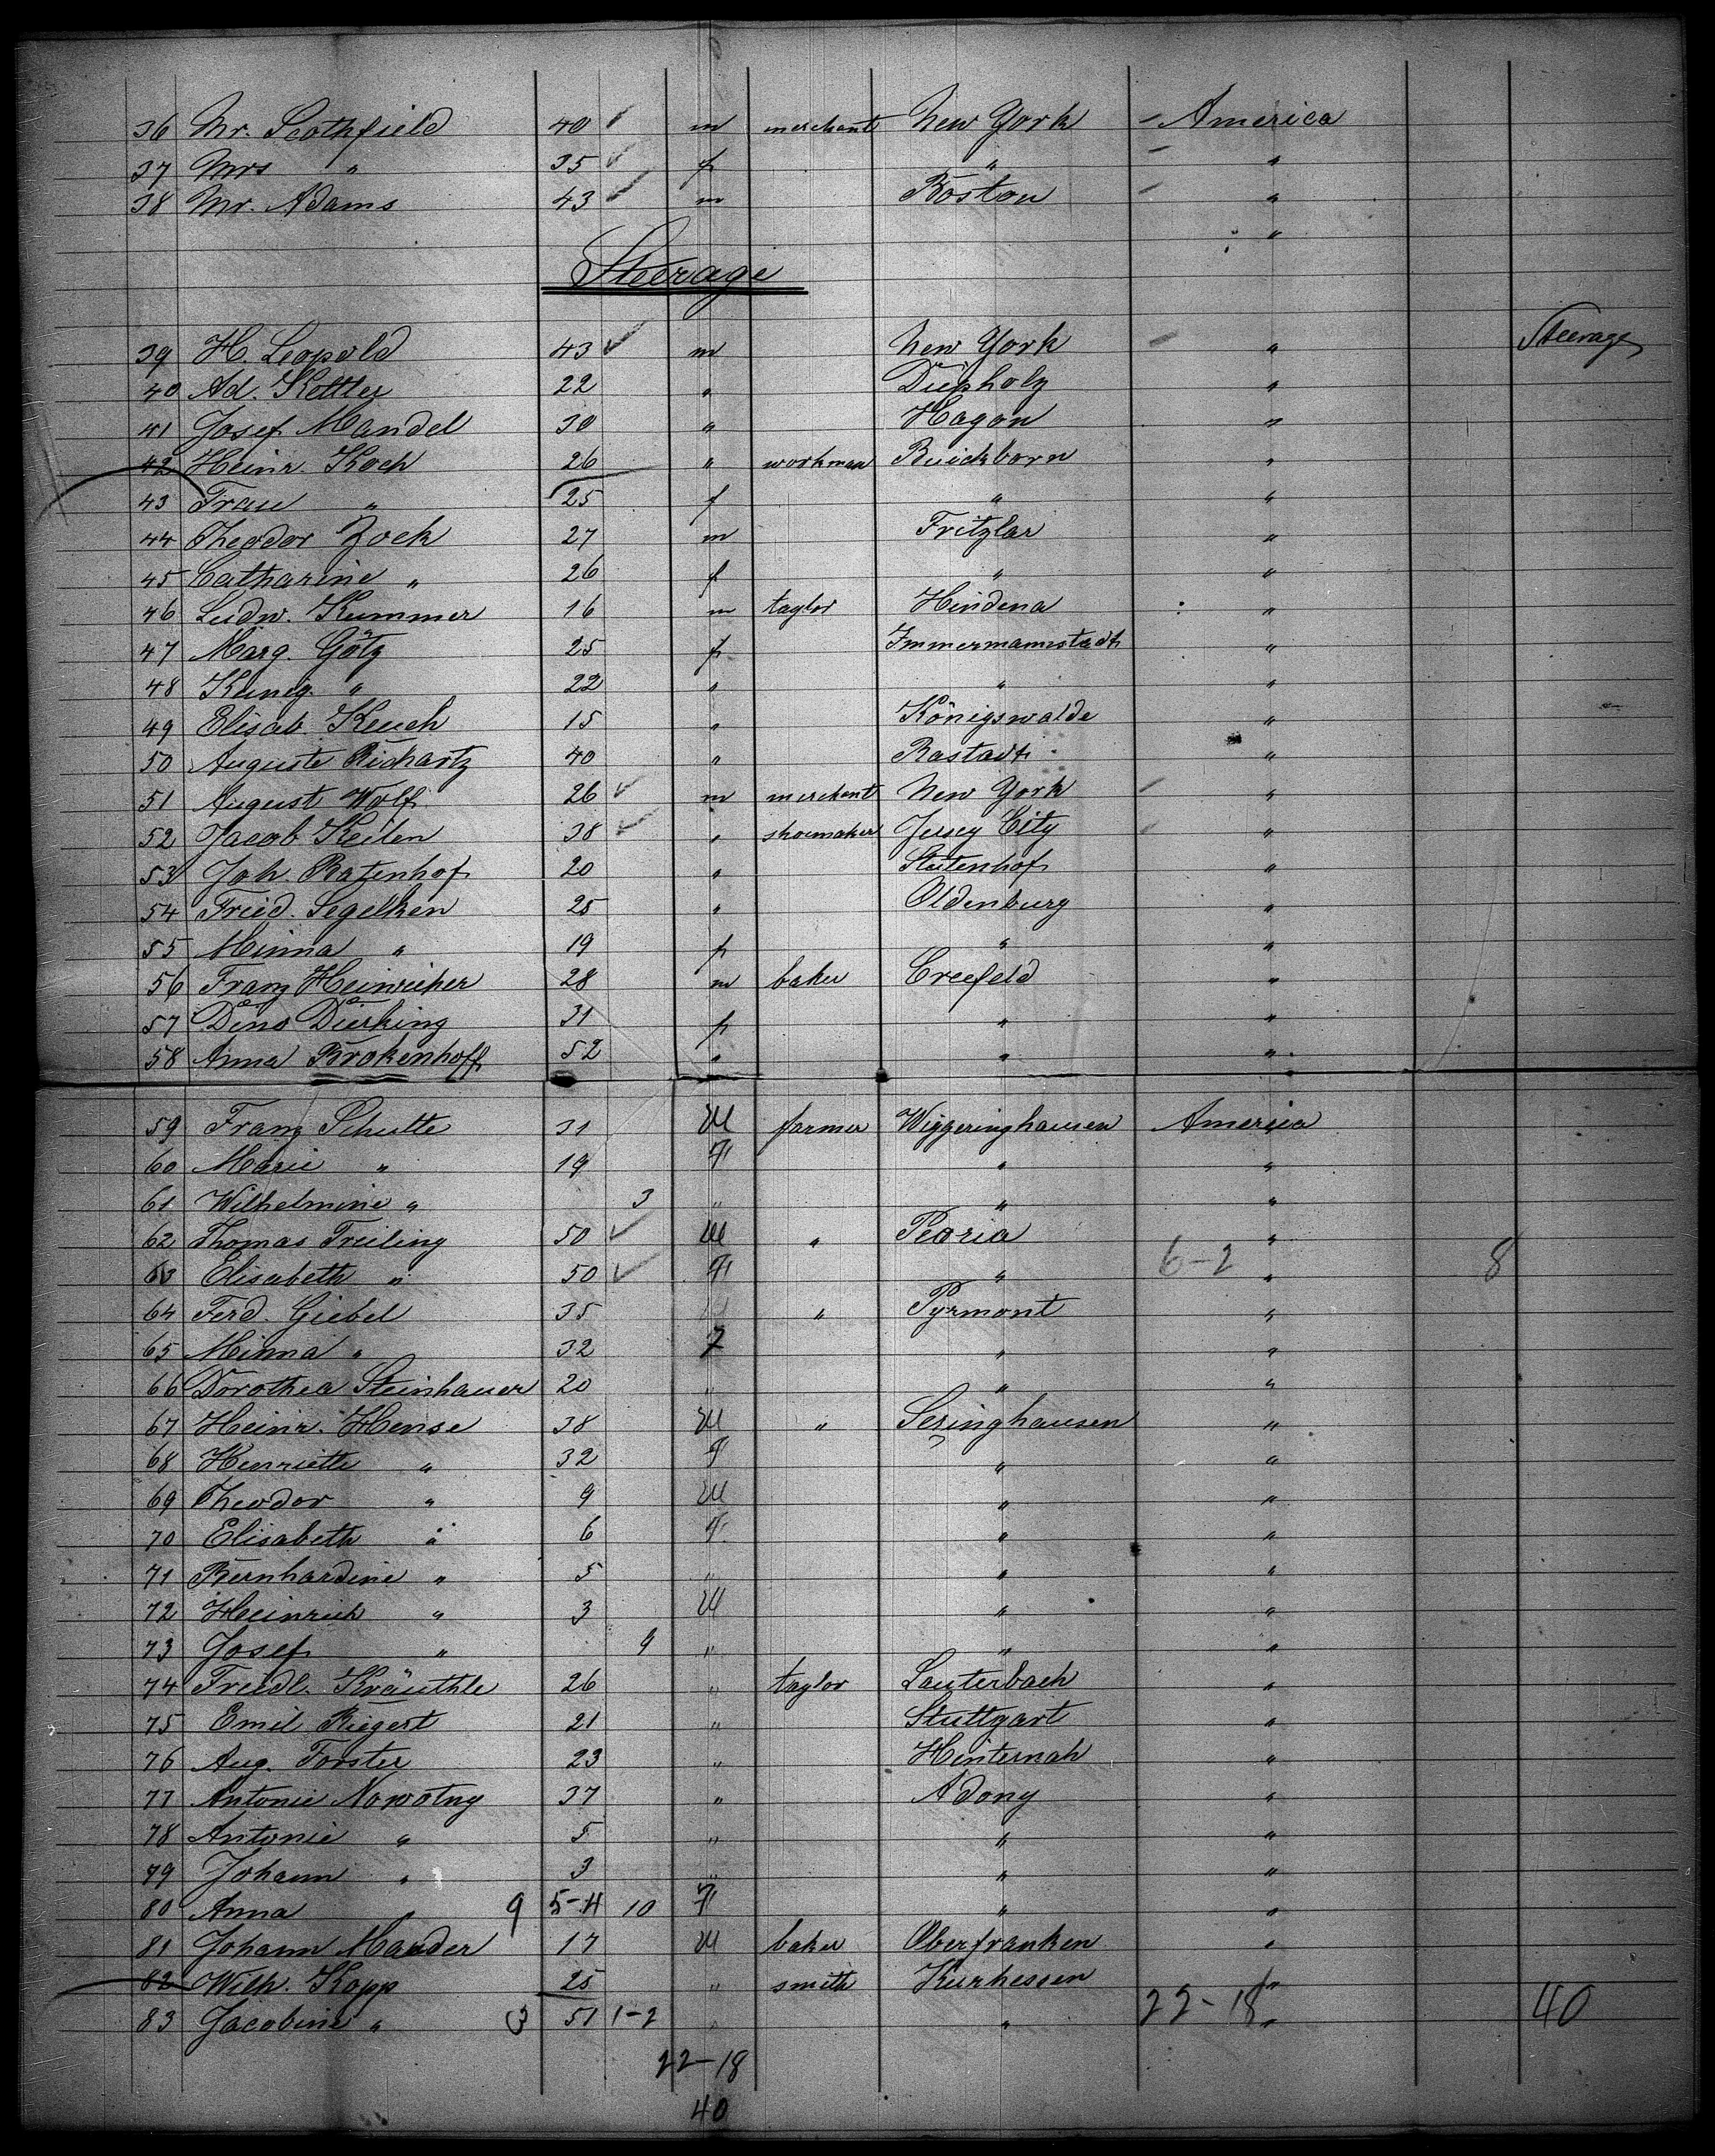 36 Mr. Scothfield 40 m merchant New York - America
37 Mrs " 35 f " - "
38 Mr. Adams 43 m Boston - "
"
Steerage
39 H. Leopold 43 m New York - " Steerage
40 Ad. Kettler 22 " Diepholz "
41 Josef Mandel 30 " Hagon "
42 Heinr. Koch 26 " workman Buickborn "
43 Frau " 25 f " "
44 Theodor Zock 27 m Fritzlar "
45 Catharine " 26 f " "
46 Ludw. Kummer 16 m taylor Hindena "
47 Marg. Götz 25 f Immermannstadt "
48 Kunig. " 22 " " "
49 Elisab. Keuch 15 " Königswalde "
50 Auguste Richartz 40 " Rastadt "
51 August Wolf 26 m merchant New York - "
52 Jacob Keilen 38 " shoemaker Jersey City - "
53 Joh. Ratenhof 20 " Stutenhof "
54 Fried. Segelken 25 " Oldenburg "
55 Minna " 19 f " "
56 Franz Heinricher 28 m baker Creefeld "
57 Dina Dierking 31 f " "
58 Anna Brokenhoff 52 " " "
59 Franz Schulte 31 M farmer Wiggeringhausen America
60 Marie " 19 F " "
61 Wilhelmine " 3 " " "
62 Thomas Freiling 50 M " Peoria "
63 Elisabeth " 50 F " 6-2 " 8
64 Ferd. Giebel 35 M " Pyrmont "
65 Minna " 32 F " "
66 Dorothea Steinhauer 20 " " "
67 Heinr. Hense 38 M " Seringhausen "
68 Henriette " 32 F " "
69 Theodor " 9 M " "
70 Elisabeth " 6 F " "
71 Bernhardine " 5 " " "
72 Heinrich " 3 M " "
73 Josef " 9 " " "
74 Friedl. Kräuthle 26 " taylor Lauterbach "
75 Emil Riegert 21 " Stuttgart "
76 Aug. Forster 23 " Hinternah "
77 Antonie Nowotny 37 " Adony "
78 Antonie " 5 " " "
79 Johann " 3 " " "
80 Anna " 9 5-4 10 F " "
81 Johann Mauder 17 M baker Oberfranken "
82 Wilh. Kopp 25 " smith Kurhessen "
83 Jacobine " 3 51 1-2 " " 22-18 " 40
22-18
40